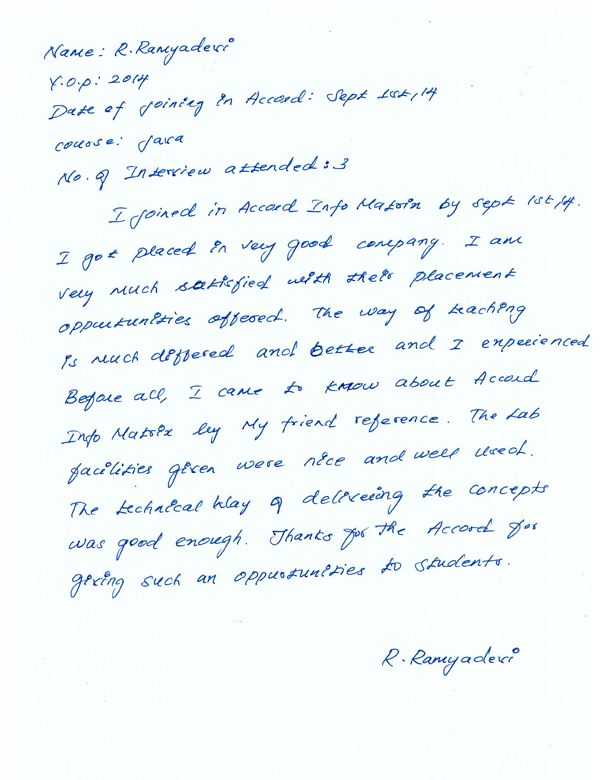 Name: R.Ramyadevi
Y.O.P: 2014
Date of joining in Accord: Sept 1st,14
course: Java
No. of Interview attended: 3
I joined in Accord Info Matrix by sept 1st,14.
I got placed in very good company. I am
very much satisfied with their placement
oppurtunities offered. The way of teaching
is much differed and better and I experienced
Before all, I came to know about Accord
Info Matrix by My friend reference. The Lab
facilities given were nice and well used.
The technical Way of delivering the concepts
was good enough. Thanks for the Accord for
giving such an oppurtunities to students.
R.Ramyadevi